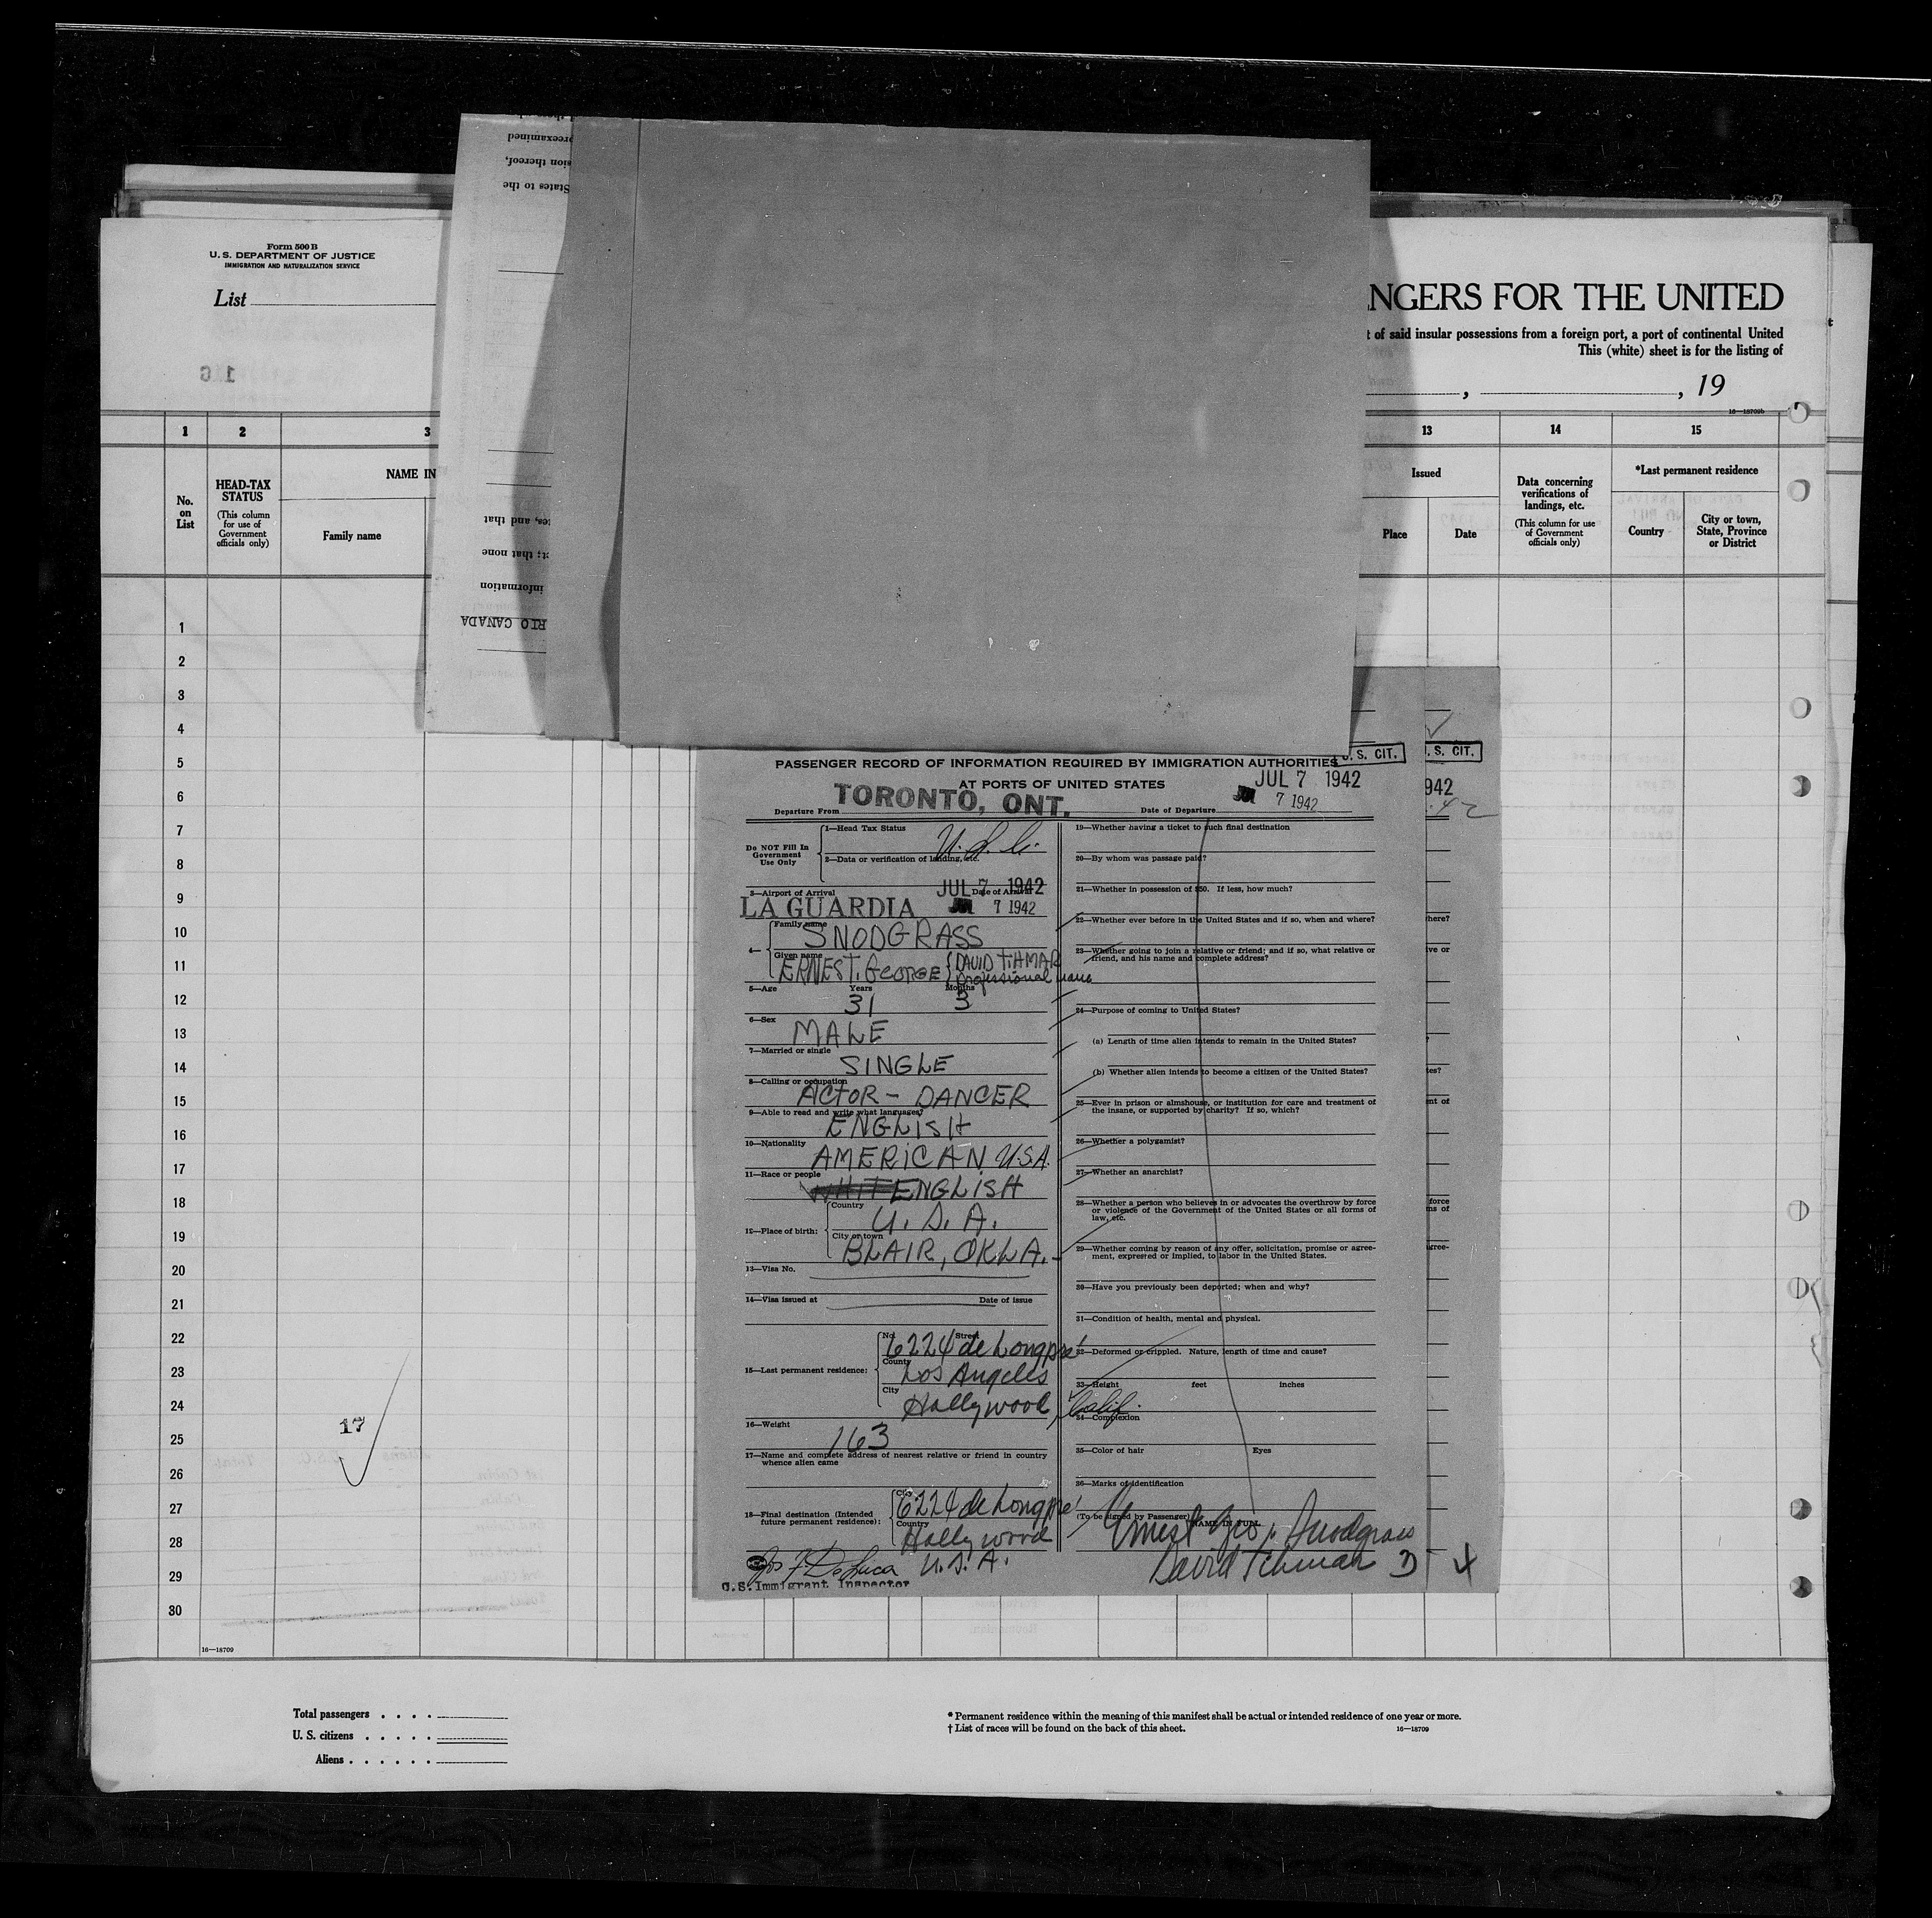 Form 500 B
U. S. DEPARTMENT OF JUSTICE
IMMIGRATION AND NATURALIZATION SERVICE
List
16
preexamined
sion thereof,
States to the
es, and that
t; that none
information
RIO CANADA
NGERS FOR THE UNITED
t of said insular possessions from a foreign port, a port of continental United
This (white) sheet is for the listing of
, , 19
16—18709b
1 2 3 13 14 15
No. on List
HEAD-TAX STATUS
(This column for use of Government officials only)
NAME IN
Family name
Issued
Place
Date
Data concerning verifications of landings, etc.
(This column for use of Government officials only)
*Last permanent residence
Country
City or town, State, Province or District
1
2
3
4
5
6
7
8
9
10
11
12
13
14
15
16
17
18
19
20
21
22
23
24
25
26
27
28
29
30
17
16—18709
PASSENGER RECORD OF INFORMATION REQUIRED BY IMMIGRATION AUTHORITIES
U. S. CIT.
. S. CIT.
AT PORTS OF UNITED STATES
JUL 7 1942
942
Departure From TORONTO, ONT.
Date of Departure 7 1942
Do NOT Fill In Government Use Only
1—Head Tax Status U. S. C.
2—Data or verification of landing, etc.
3—Airport of Arrival LA GUARDIA
Date of Arrival JUL 7 1942
7 1942
4— Family name SNODGRASS
Given name ERNEST. GEORGE { DAVID TIHMAR
Professional name
5—Age Years 31 Months 3
6—Sex MALE
7—Married or single SINGLE
8—Calling or occupation ACTOR - DANCER
9—Able to read and write what languages? ENGLISH
10—Nationality AMERICAN U.S.A.
11—Race or people WHITE ENGLISH
12—Place of birth: Country U. S. A.
City or town BLAIR, OKLA.
13—Visa No.
14—Visa issued at Date of issue
15—Last permanent residence: No. Street 6224 de Longpré
County Los Angeles
City Hollywood, Calif.
16—Weight 163
17—Name and complete address of nearest relative or friend in country whence alien came
18—Final destination (Intended future permanent residence): City 6224 de Longpré
Country Hollywood
U.S.A.
Jos F. DeLuca
U.S. Immigrant Inspector
19—Whether having a ticket to such final destination
20—By whom was passage paid?
21—Whether in possession of $50. If less, how much?
22—Whether ever before in the United States and if so, when and where?
here?
23—Whether going to join a relative or friend; and if so, what relative or
ve or
friend, and his name and complete address?
24—Purpose of coming to United States?
(a) Length of time alien intends to remain in the United States?
?
(b) Whether alien intends to become a citizen of the United States?
tes?
25—Ever in prison or almshouse, or institution for care and treatment of
nt of
the insane, or supported by charity? If so, which?
26—Whether a polygamist?
27—Whether an anarchist?
28—Whether a person who believes in or advocates the overthrow by force
force
or violence of the Government of the United States or all forms of
ms of
law, etc.
29—Whether coming by reason of any offer, solicitation, promise or agree-
agree-
ment, expressed or implied, to labor in the United States.
30—Have you previously been deported; when and why?
31—Condition of health, mental and physical.
32—Deformed or crippled. Nature, length of time and cause?
33—Height feet inches
34—Complexion
35—Color of hair Eyes
36—Marks of identification
(To be signed by Passenger) NAME IN FULL
Ernest Geo. Snodgrass
David Tihmar
Total passengers . . . .
U. S. citizens . . . . .
Aliens . . . . . .
* Permanent residence within the meaning of this manifest shall be actual or intended residence of one year or more.
† List of races will be found on the back of this sheet.
16—18709